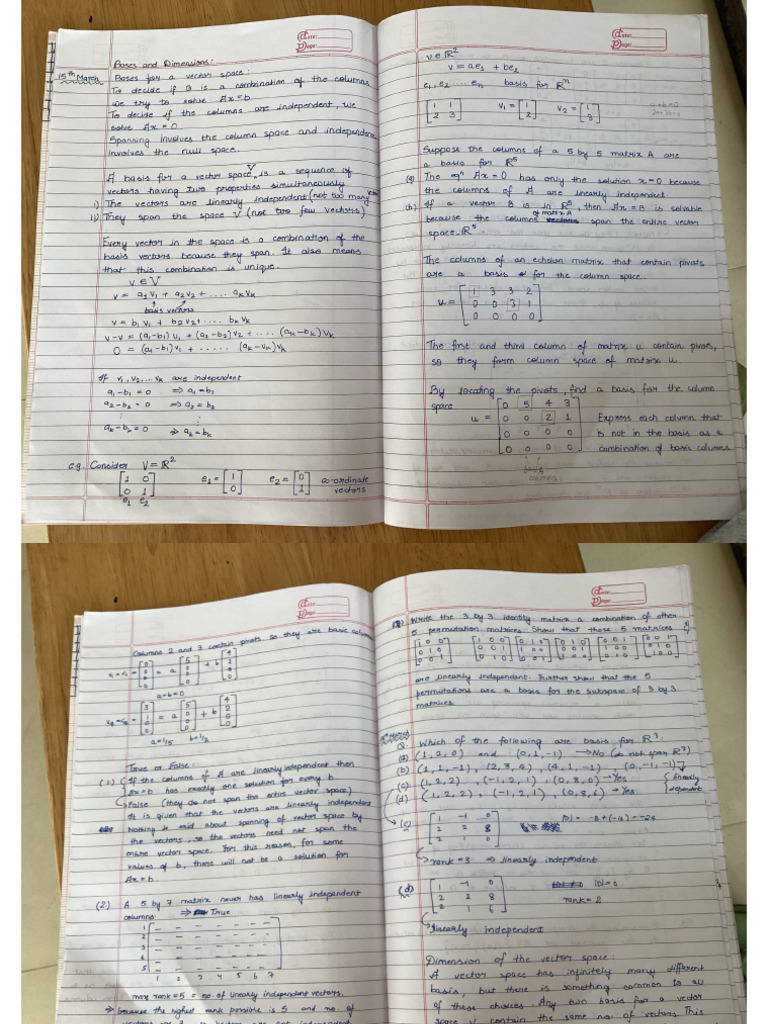 Date:
Page:
15th March
Bases and Dimensions:
Bases for a vector space:
To decide if B is a combination of the columns
we try to solve Ax=b
To decide if the columns are independent, we
solve Ax=0
Spanning involves the column space and independence
involves the null space.
A basis for a vector space V, is a sequence of
vectors having two properties simultaneously
i) The vectors are linearly independent (not too many vectors)
ii) They span the space V (not too few vectors)
Every vector in the space is a combination of the
basis vectors because they span. It also means
that this combination is unique.
v ∈ V
v = a1v1 + a2v2 + .... akvk
basis vectors
v = b1v1 + b2v2 + .... bkvk
v-v = (a1-b1)v1 + (a2-b2)v2 + .... (ak-bk)vk
0 = (a1-b1)v1 + ...... (ak-vk)vk
If v1, v2, ... vk are independent
a1-b1 = 0 ⇒ a1=b1
a2-b2 = 0 ⇒ a2=b2
ak-bk = 0 ⇒ ak=bk
e.g. Consider V=R²
[1 0
0 1]
e1 e2
e1 = [1
0]
e2 = [0
1]
co-ordinate
vectors
Date:
Page:
v ∈ R²
v = ae1 + be2
e1, e2 .... en basis for Rⁿ
[1 1
2 3]
v1 = [1
2]
v2 = [1
3]
Suppose the columns of a 5 by 5 matrix A are
a basis for R⁵
(a) The eqn Ax=0 has only the solution x=0 because
the columns of A are linearly independent.
(b) If a vector B is in R⁵, then Ax=B is solvable
because the columns of matrix A span the entire vector
space. R⁵
The columns of an echelon matrix that contain pivots
are a basis for the column space.
u = [1 3 3 2
0 0 3 1
0 0 0 0]
The first and third column of matrix u contain pivots,
so they form column space of matrix u.
By locating the pivots, find a basis for the column
space
u = [0 5 4 3
0 0 2 1
0 0 0 0
0 0 0 0]
Express each column that
is not in the basis as a
combination of basic columns
columns
Date:
Page:
Columns 2 and 3 contain pivots so they are basic columns
= [0
0
0
0] = a [5
0
0
0] + b [4
2
0
0]
a=b=0
= [3
1
0
0] = a [5
0
0
0] + b [4
2
0
0]
a=1/5 b=1/2
True or False:
(1) If the columns of A are linearly independent then
Ax=b has exactly one solution for every b
False (they do not span the entire vector space)
It is given that the vectors are linearly independent
Nothing is said about spanning of vector space by
the vectors, so the vectors need not span the
entire vector space. For this reason, for some
values of b, there will not be a solution for
Ax=b.
(2) A 5 by 7 matrix never has linearly independent
columns. ⇒ True
1
2
3
4
5
1 2 3 4 5 6 7
max rank=5 = no. of linearly independent vectors.
⇒ because the highest rank possible is 5 and no. of
Date:
Page:
Write the 3 by 3 identity matrix a combination of other
5 permutation matrices. Show that those 5 matrices
are linearly independent. Further show that the 5
permutations are a basis for the subspace of 3 by 3
matrices.
Q. Which of the following are basis for R³.
(a) (1, 2, 0) and (0, 1, -1) → No (do not span R³)
(b) (1, 1, -1), (2, 3, 4), (4, 1, -1), (0, -1, -1)
(c) (1, 2, 2), (-1, 2, 1), (0, 8, 0) → Yes
(d) (1, 2, 2), (-1, 2, 1), (0, 8, 6) → Yes
linearly
dependent
(c) [1 -1 0
2 2 8
2 1 0]
|D| = -8+(-16) = -24
rank = 3 ⇒ linearly independent
(d) [1 -1 0
2 2 8
2 1 6]
|D|=0
rank = 2
linearly independent
Dimension of the vector space:
A vector space has infinitely many different
basis, but there is something common to all
of these choices. Any two basis for a vector
space V contain the same no. of vectors. This